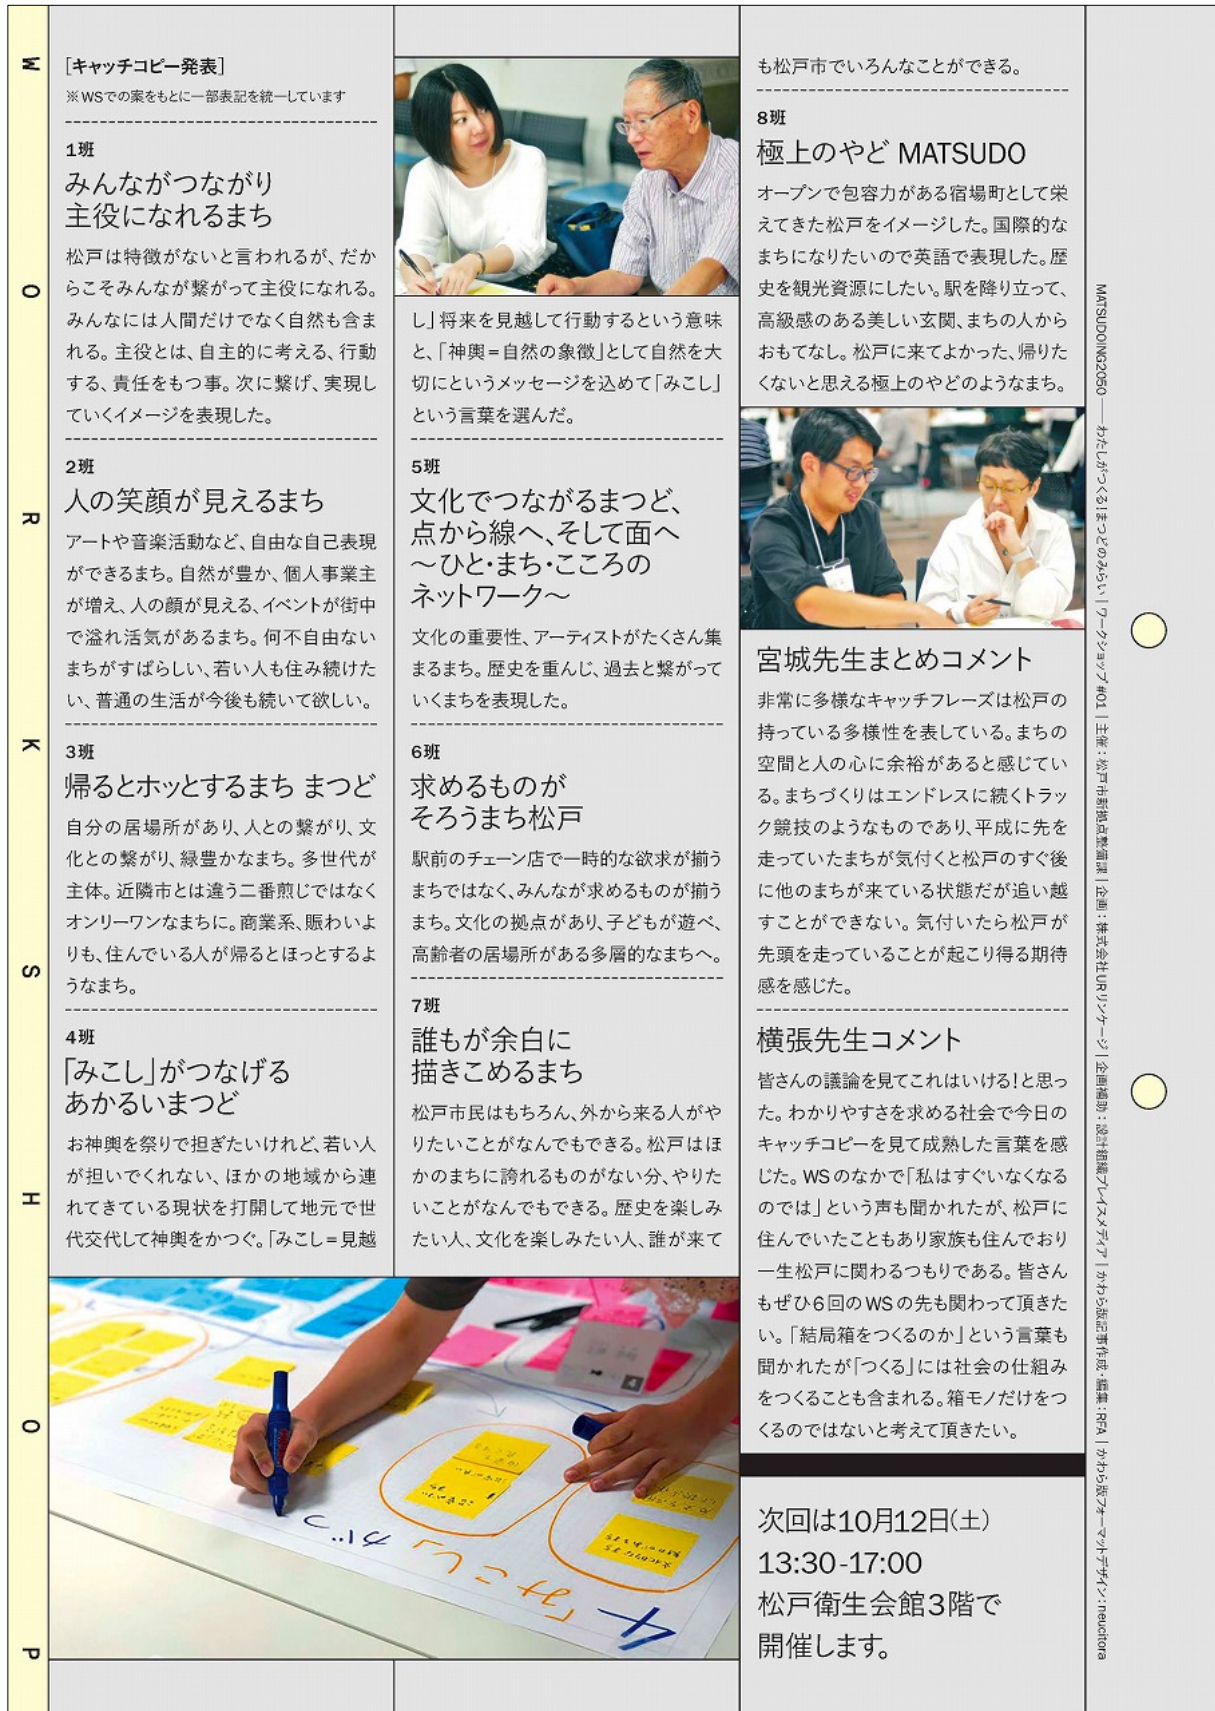 WORKSHOP
[キャッチコピー発表]
※WSでの案をもとに一部表記を統一しています
1班
みんながつながり
主役になれるまち
松戸は特徴がないと言われるが、だか
らこそみんなが繋がって主役になれる。
みんなには人間だけでなく自然も含ま
れる。主役とは、自主的に考える、行動
する、責任をもつ事。次に繋げ、実現し
ていくイメージを表現した。
2班
人の笑顔が見えるまち
アートや音楽活動など、自由な自己表現
ができるまち。自然が豊か、個人事業主
が増え、人の顔が見える、イベントが街中
で溢れ活気があるまち。何不自由ない
まちがすばらしい、若い人も住み続けた
い、普通の生活が今後も続いて欲しい。
3班
帰るとホッとするまち まつど
自分の居場所があり、人との繋がり、文
化との繋がり、緑豊かなまち。多世代が
主体。近隣市とは違う二番煎じではなく
オンリーワンなまちに。商業系、賑わいよ
りも、住んでいる人が帰るとほっとするよ
うなまち。
4班
「みこし」がつなげる
あかるいまつど
お神輿を祭りで担ぎたいけれど、若い人
が担いでくれない、ほかの地域から連
れてきている現状を打開して地元で世
代交代して神輿をかつぐ。「みこし=見越
し」将来を見越して行動するという意味
と、「神輿=自然の象徴」として自然を大
切にというメッセージを込めて「みこし」
という言葉を選んだ。
5班
文化でつながるまつど、
点から線へ、そして面へ
〜ひと・まち・こころの
ネットワーク〜
文化の重要性、アーティストがたくさん集
まるまち。歴史を重んじ、過去と繋がって
いくまちを表現した。
6班
求めるものが
そろうまち松戸
駅前のチェーン店で一時的な欲求が揃う
まちではなく、みんなが求めるものが揃う
まち。文化の拠点があり、子どもが遊べ、
高齢者の居場所がある多層的なまちへ。
7班
誰もが余白に
描きこめるまち
松戸市民はもちろん、外から来る人がや
りたいことがなんでもできる。松戸はほ
かのまちに誇れるものがない分、やりた
いことがなんでもできる。歴史を楽しみ
たい人、文化を楽しみたい人、誰が来て
も松戸市でいろんなことができる。
8班
極上のやど MATSUDO
オープンで包容力がある宿場町として栄
えてきた松戸をイメージした。国際的な
まちになりたいので英語で表現した。歴
史を観光資源にしたい。駅を降り立って、
高級感のある美しい玄関、まちの人から
おもてなし。松戸に来てよかった、帰りた
くないと思える極上のやどのようなまち。
宮城先生まとめコメント
非常に多様なキャッチフレーズは松戸の
持っている多様性を表している。まちの
空間と人の心に余裕があると感じてい
る。まちづくりはエンドレスに続くトラッ
ク競技のようなものであり、平成に先を
走っていたまちが気付くと松戸のすぐ後
に他のまちが来ている状態だが追い越
すことができない。気付いたら松戸が
先頭を走っていることが起こり得る期待
感を感じた。
横張先生コメント
皆さんの議論を見てこれはいける!と思っ
た。わかりやすさを求める社会で今日の
キャッチコピーを見て成熟した言葉を感
じた。WSのなかで「私はすぐいなくなる
のでは」という声も聞かれたが、松戸に
住んでいたこともあり家族も住んでおり
一生松戸に関わるつもりである。皆さん
もぜひ6回のWSの先も関わって頂きた
い。「結局箱をつくるのか」という言葉も
聞かれたが「つくる」には社会の仕組み
をつくることも含まれる。箱モノだけをつ
くるのではないと考えて頂きたい。
次回は10月12日(土)
13:30-17:00
松戸衛生会館3階で
開催します。
4「みこし」がつ
MATSUDOING2050——わたしがつくる!まつどのみらい|ワークショップ #01|主催:松戸市新拠点整備課|企画:株式会社URリンケージ|企画補助:設計組織プレイスメディア|かわら版記事作成・編集:RFA|かわら版フォーマットデザイン:neucitora